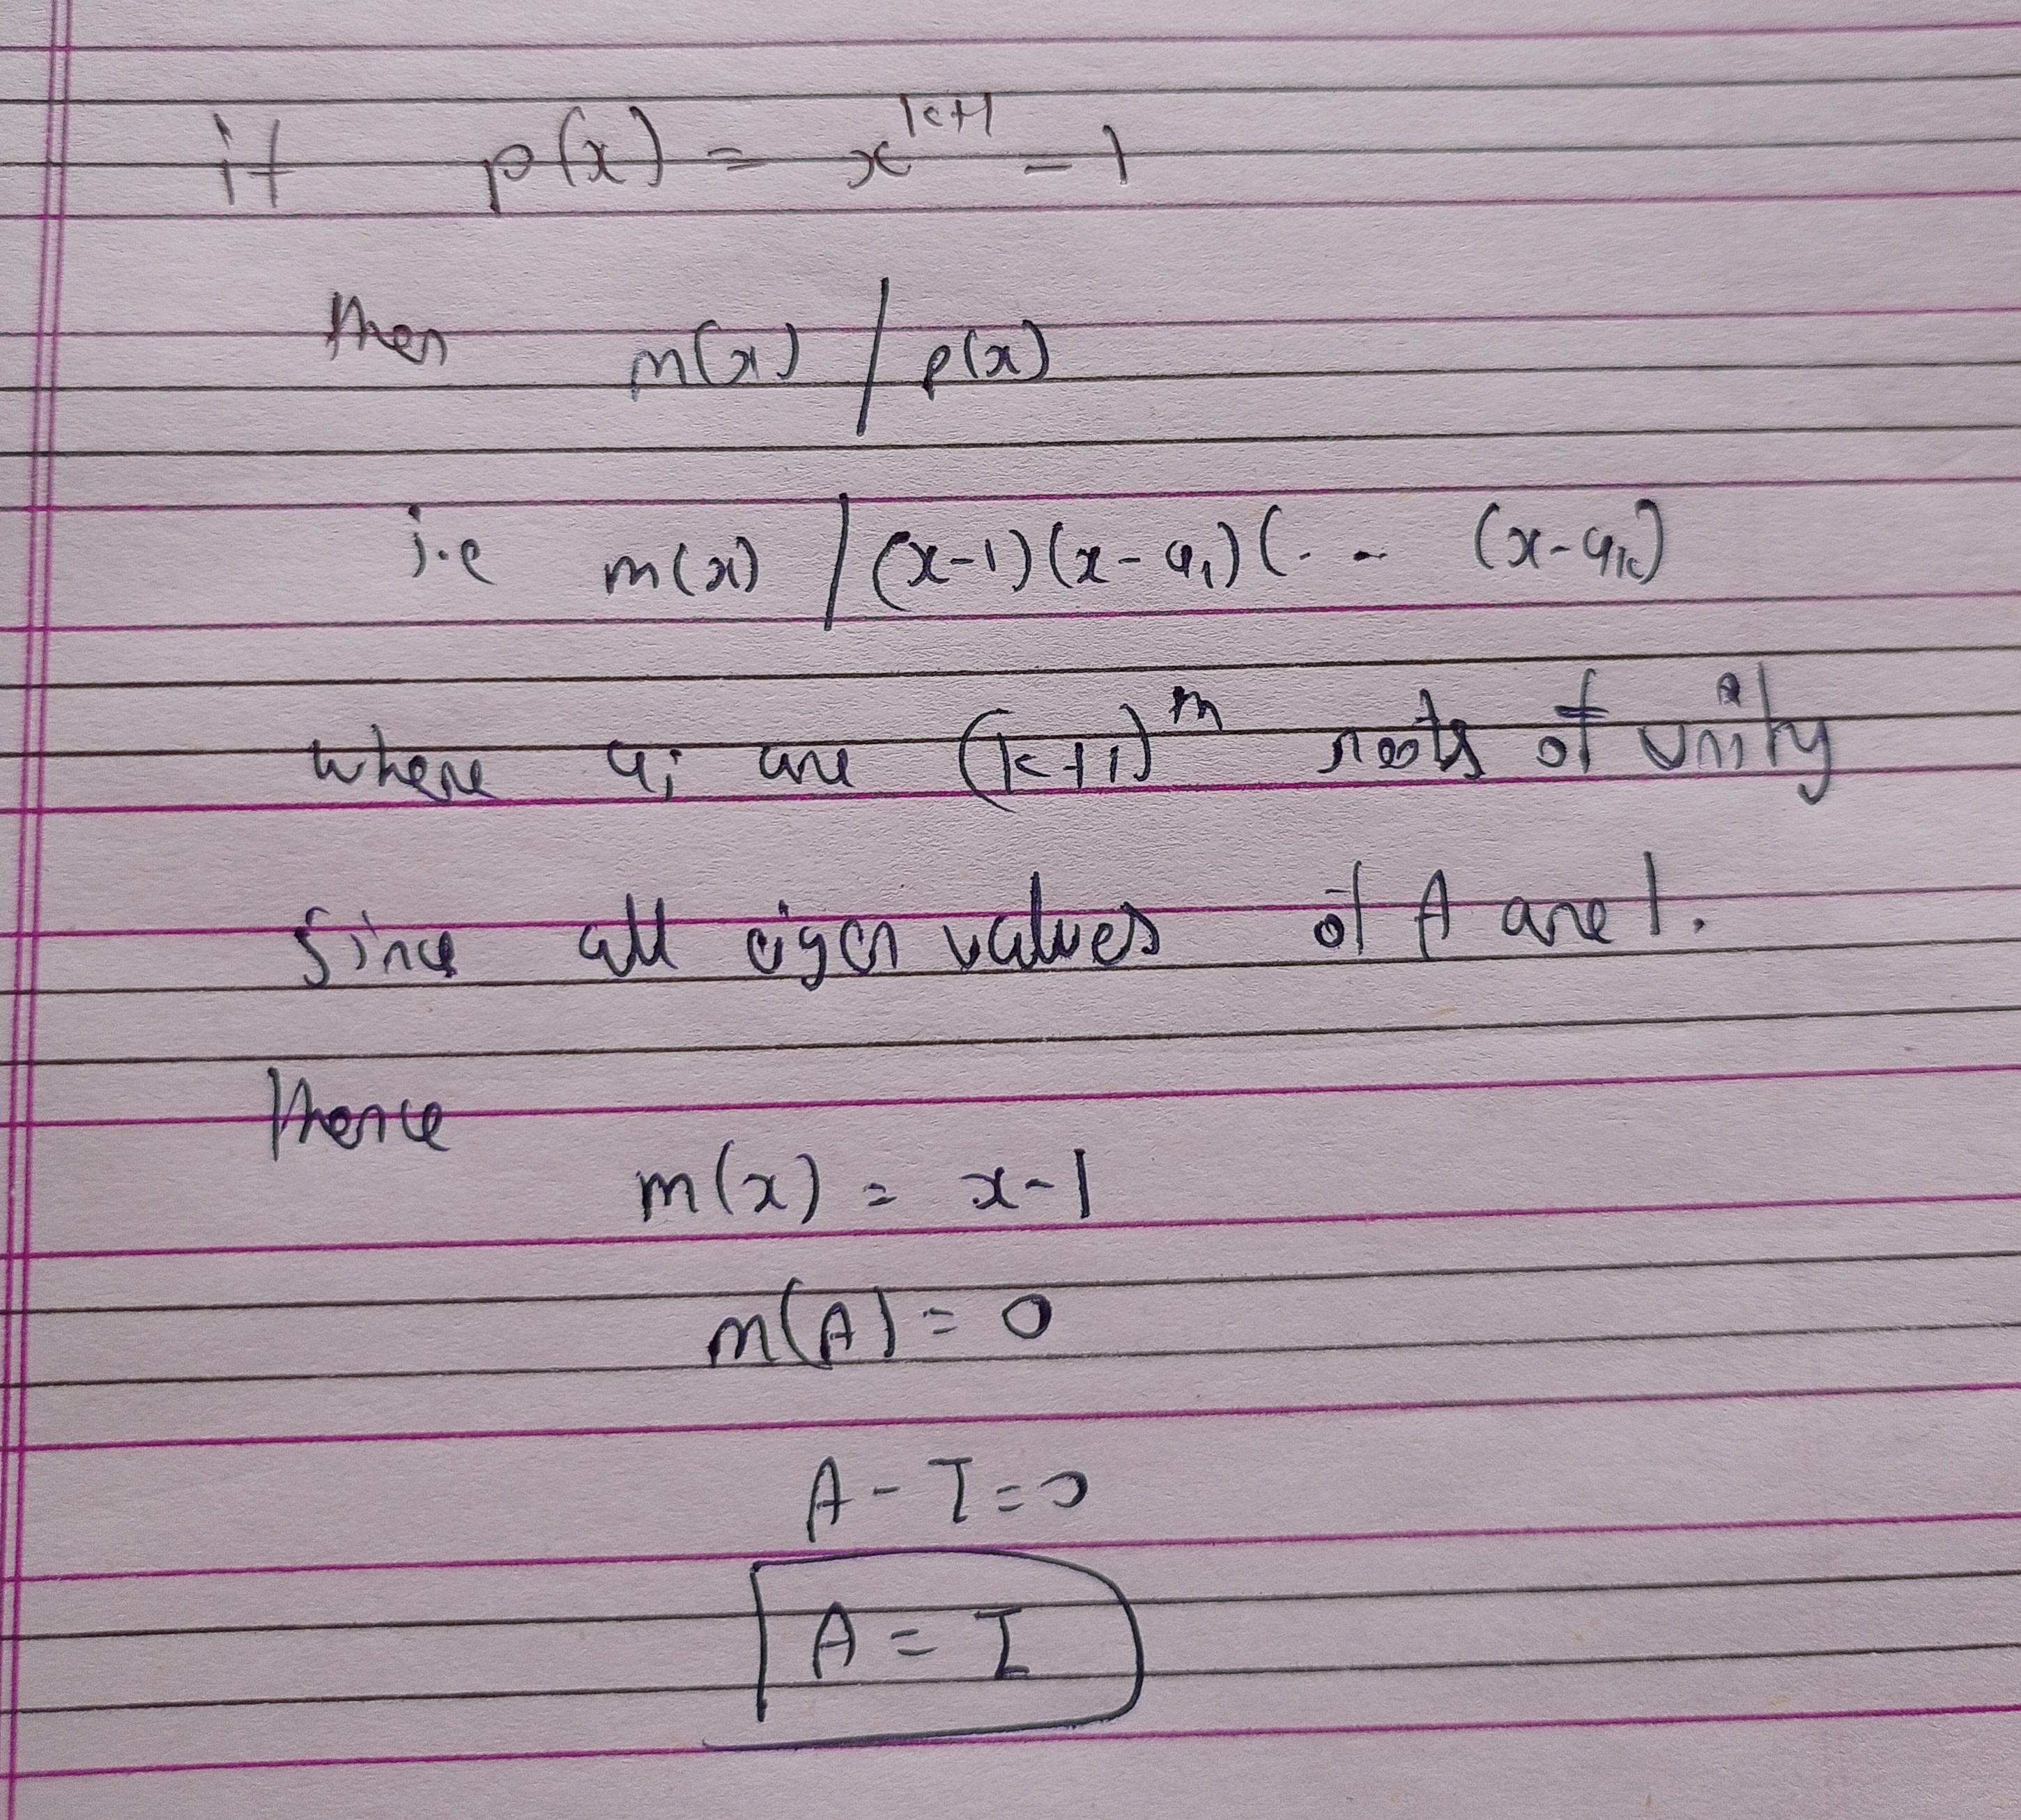 if p(x) = x^{k+1} - 1
then m(x) / p(x)
i.e m(x) / (x-1)(x-a₁)(... (x-aₖ)
where aᵢ are (k+1)^{th} roots of unity
Since all eigen values of A are 1.
Hence
m(x) = x-1
m(A) = 0
A - I = 0
A = I